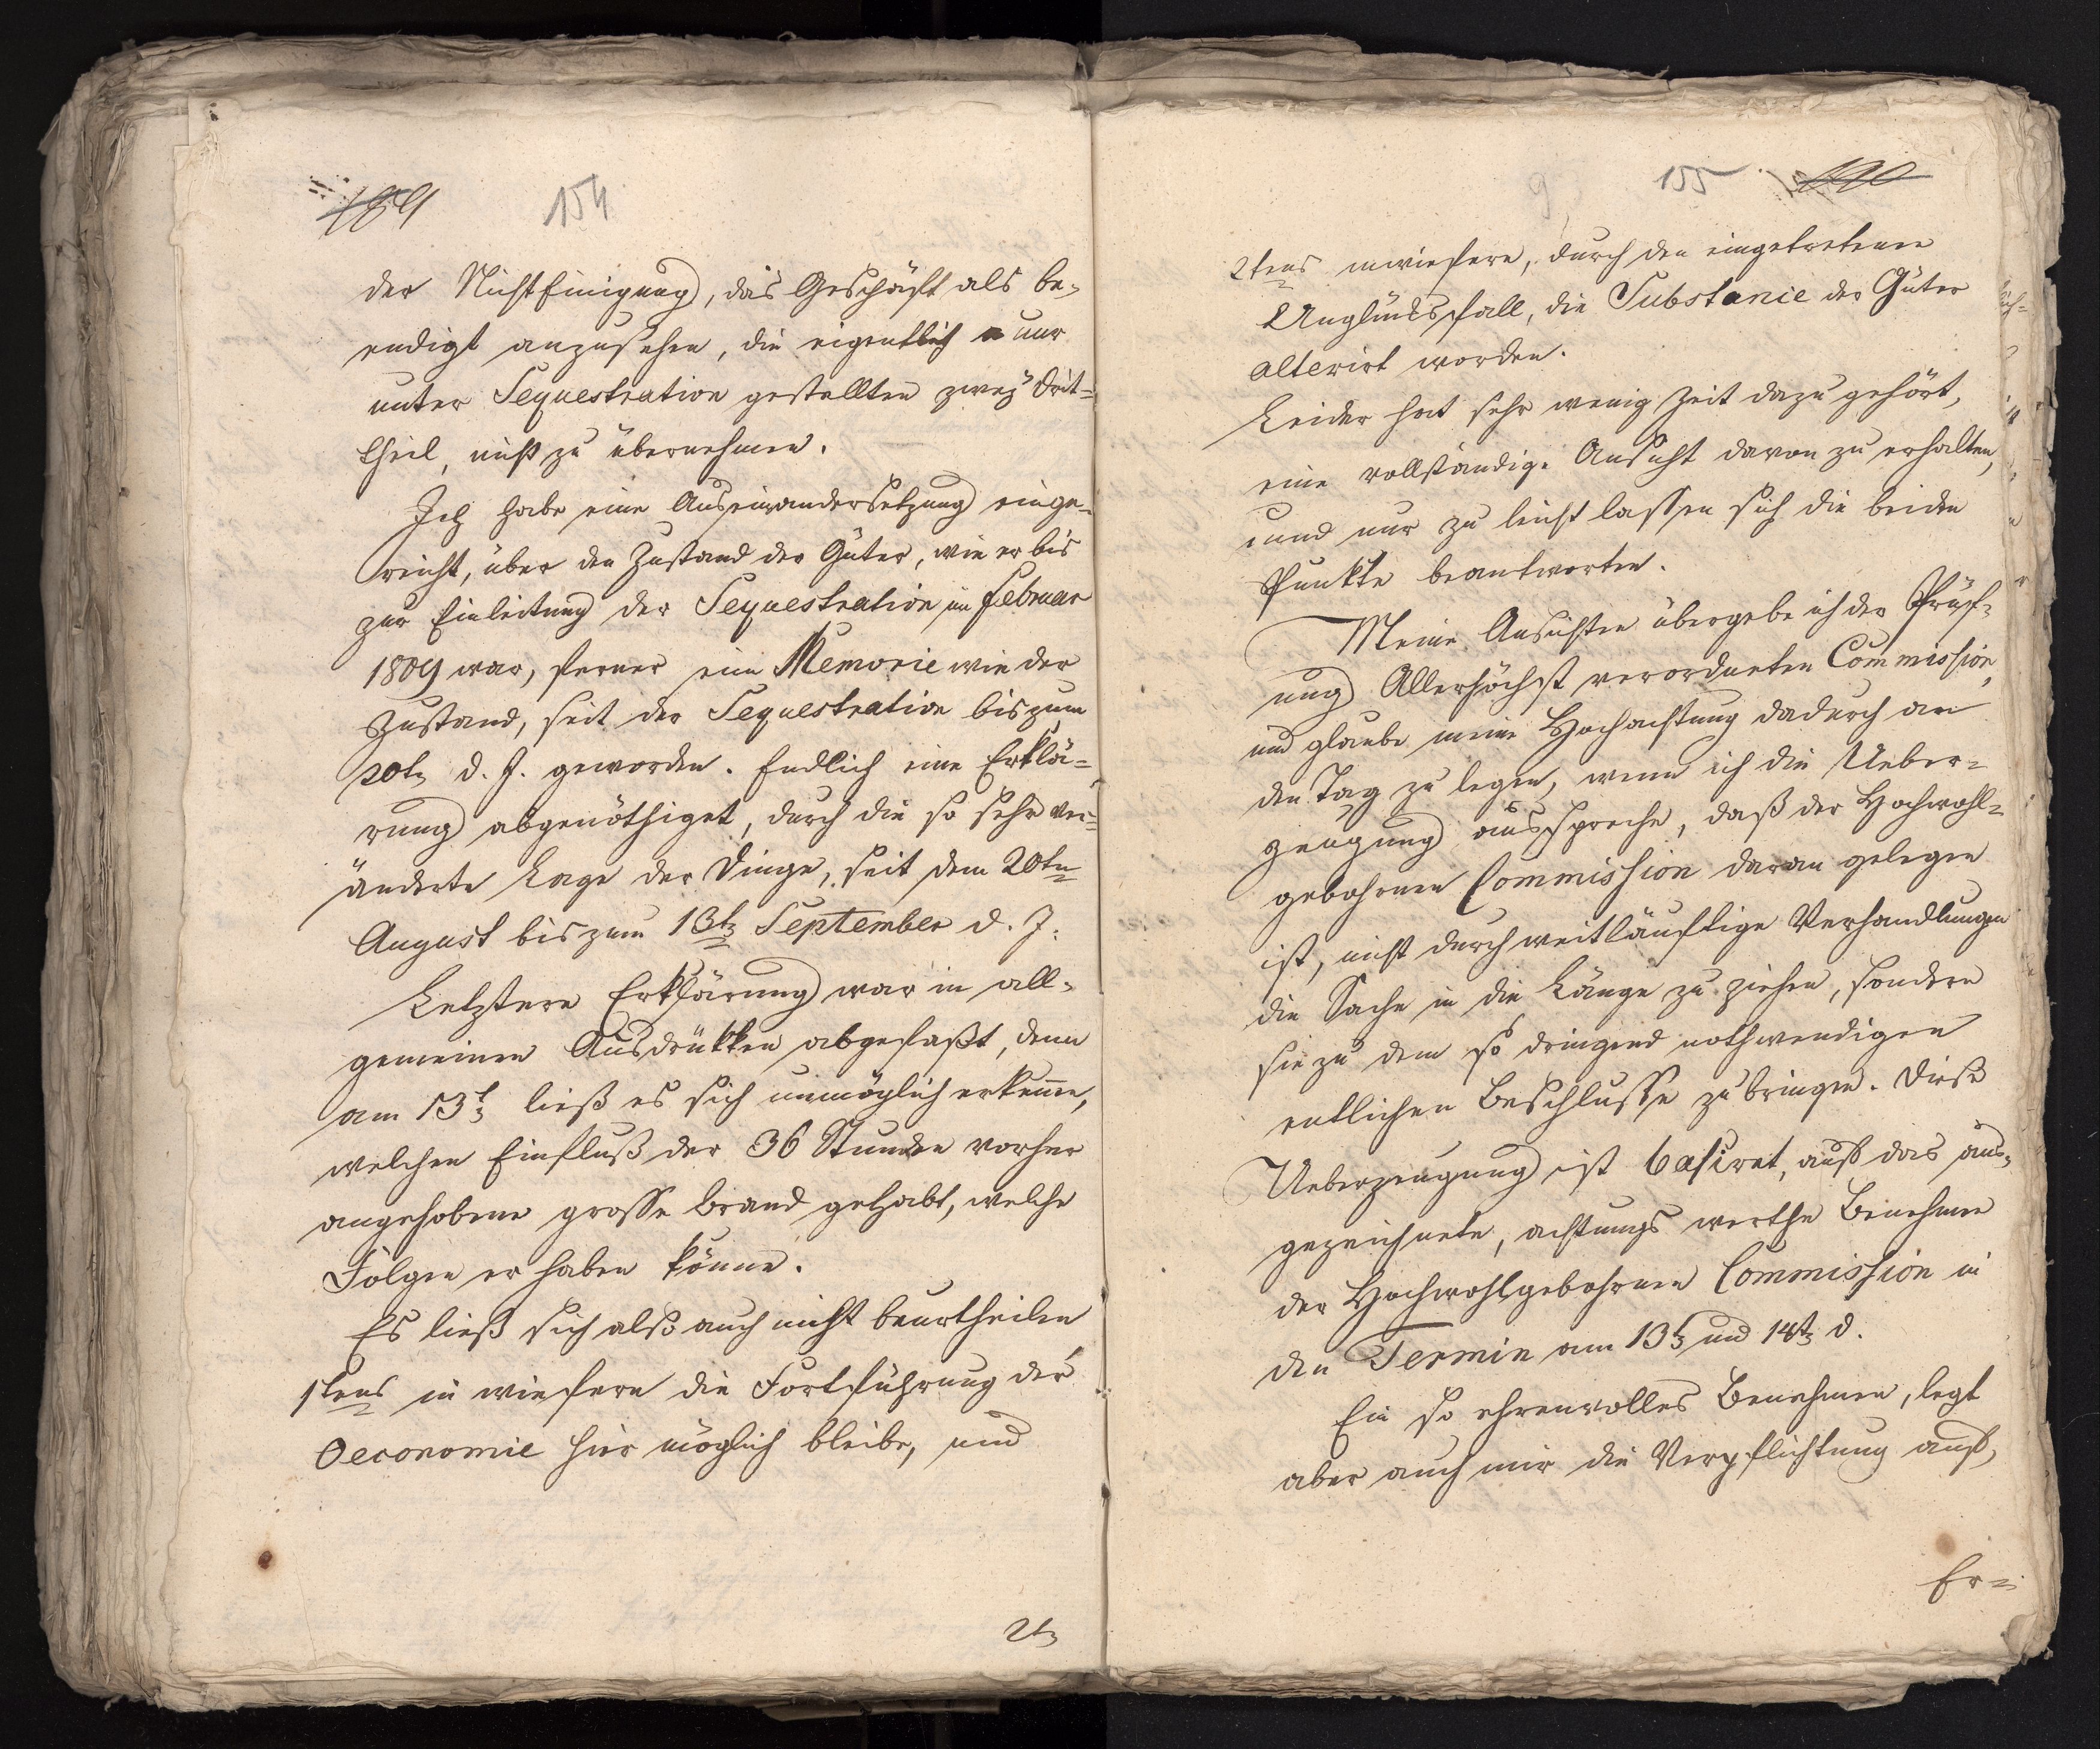 189 154
der Nichteinigung, das Geschäft als be-
endigt anzusehen, die eigentlich nur
unter Sequestration gestellten zwey Drit-
theil, nicht zu übernehmen.
Ich habe eine Auseinandersetzung einge-
reicht, über den Zustand der Güter, wie er bis
zur Einleitung der Sequestration im Februar
1809 war, ferner eine Memorie wie der
Zustand, seit der Sequestration bis zum
d. J. geworden. Endlich eine Erklä-
rung abgenöthiget, durch die so sehr ver-
änderte Lage der Dinge, seit dem 20ten
August bis zum 13t September d. J.
Letztere Erklärung war in all-
gemeinen Ausdrükken abgefaßt, denn
am 13t ließ es sich unmöglich erkennen,
welchen Einfluß der 36 Stunden vorher
angehobene grosse Brand gehabt, welche
Folgen er haben könne.
Es ließ sich also auch nicht beurtheilen
1tens in wiefern die Fortführung der
Oeconomie hier möglich bleibe, und
2t
155 190
2tens inwiefern, durch den eingetretenen
Unglücksfall, die Substanie der Güter
alterirt worden.
Leider hat sehr wenig Zeit dazu gehört,
eine vollständige Ansicht davon zu erhalten,
und nur zu leicht lassen sich die beiden
Punkte beantworten.
Meine Ansichten übergebe ich der Prüf-
ung Allerhöchst verordneten Commission,
und glaube meine Hochachtung dadurch an
den Tag zu legen, wenn ich die Ueber-
zeugung ausspreche, daß der Hochwohl-
gebohrnen Commission daran gelegen
ist, nicht durch weitläuftige Verhandlungen
die Sache in die Länge zu ziehen, sondern
sie zu dem so dringend nothwendigen
entlichen Beschlusse zu bringen. Diese
Ueberzeugung ist basiret, auf das aus-
gezeichnete, achtungs werthe Benehmen
der Hochwohlgebohrnen Commission in
den Termin am 13t und 14t d.
Ein so ehrenvolles Benehmen, legt
aber auch mir die Verpflichtung auf,
Er-